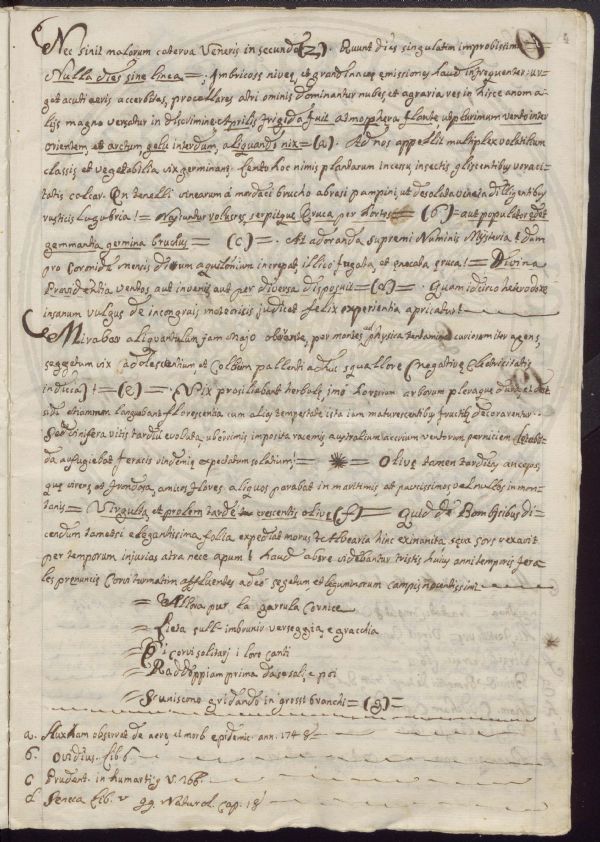 Nec sinit malorum caterva Veneris in secunda (Z). Ruunt dies singulatim improbissimi =
Nulla dies sine linea =; nives, et grandinaceę emissiones haud infrequenter: ur-
get acuti aeris accerbitas, procellares atri ominis dominantur nubes, et agraria res in hisce anoma-
lijs magno versatur in discrimine. Aprilis frigida fuit atmosphęra flante ut plurimum vento inter
orientem, et arctum, gelu interdum, aliquando nix = (a). Ad nos appellit multiplex volatilium
classis et vegetabilia vix germinans. lento hoc nimis plantarum incessu insectis gliscentibus voraci-
tatis calcar. En tenelli vinearum a mordaci brucho abrasi pampini, ut desolata vineta diligentibus
rusticis lugubria! = serpitque Eruca per hortos = (b) = aut populator edet
gemmantia germina bruchus = (c) =. At adoranda supremi Numinis Mysteria! dum
pro mensis aquilonium increpat illico fugata, et enecata eruca! = Divina
Providentia ventos aut invenit aut per diversa disposuit = (d) =. Quam idcirco heterodoxe
insanum vulgus de incongruis meteoricis judicet felix experientia apricatur
Mirabar aliquantulum jam Majo obeunte, per montes ad physica tentamina curiosum iter agens,
seggetum vix adolescentium et Collium pallenti adhuc squallore (negativę Electricitatis
indicia) = (e) =. Vix prosiliebant herbulę, imò hortorum arborum pleraque
etiamnum languebant florescentia cum alijs tempestate ista iam maturescentibus fructibus decorarentur.
Sed vinifera vitis tardius evoluta uberrimis imposita racemis australium ventorum perniciem
aufugiebat feracis vindemię expectatum solatium! = * = Olivę tamen tarditas anceps,
quę virens, et frondosa, amens flores aliquos parabat in maritimis et paucissimos vel nullos in mon-
tanis = Virgulta, et prolem tarde crescentis olivę (f) = Quid de Bombicibus di-
cendum tametsi elegantissima folia expediat morus? hinc exinanita sęva sors vexavit
per temporum injurias atra nece haud abs re videbantur tristis huius anni temporis fera-
les prenuncij Corvi turmatim affluentes adeo segetum et leguminorum campis nocentissimi
= Allora pur la garrula Cornice
= Lieta sull' imbrunir verseggia, e gracchia
= E i corvi solitarj i lor canti
= Raddoppian prima da se soli, e poi
= S'uniscono gridando in grossi branchi = (g) =
a. Huxham observat. de aere, et morb. epidemic. ann. 1748
b. Ovidius. Lib. 6.
c Prudent. in Hamartig. V. 166.
d Seneca Lib. V qq. Natural. Cap. 18